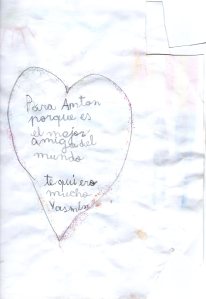 Para Anton
porque es
el mejor
amigo del
mundo
te quiero
mucho
Yasmin